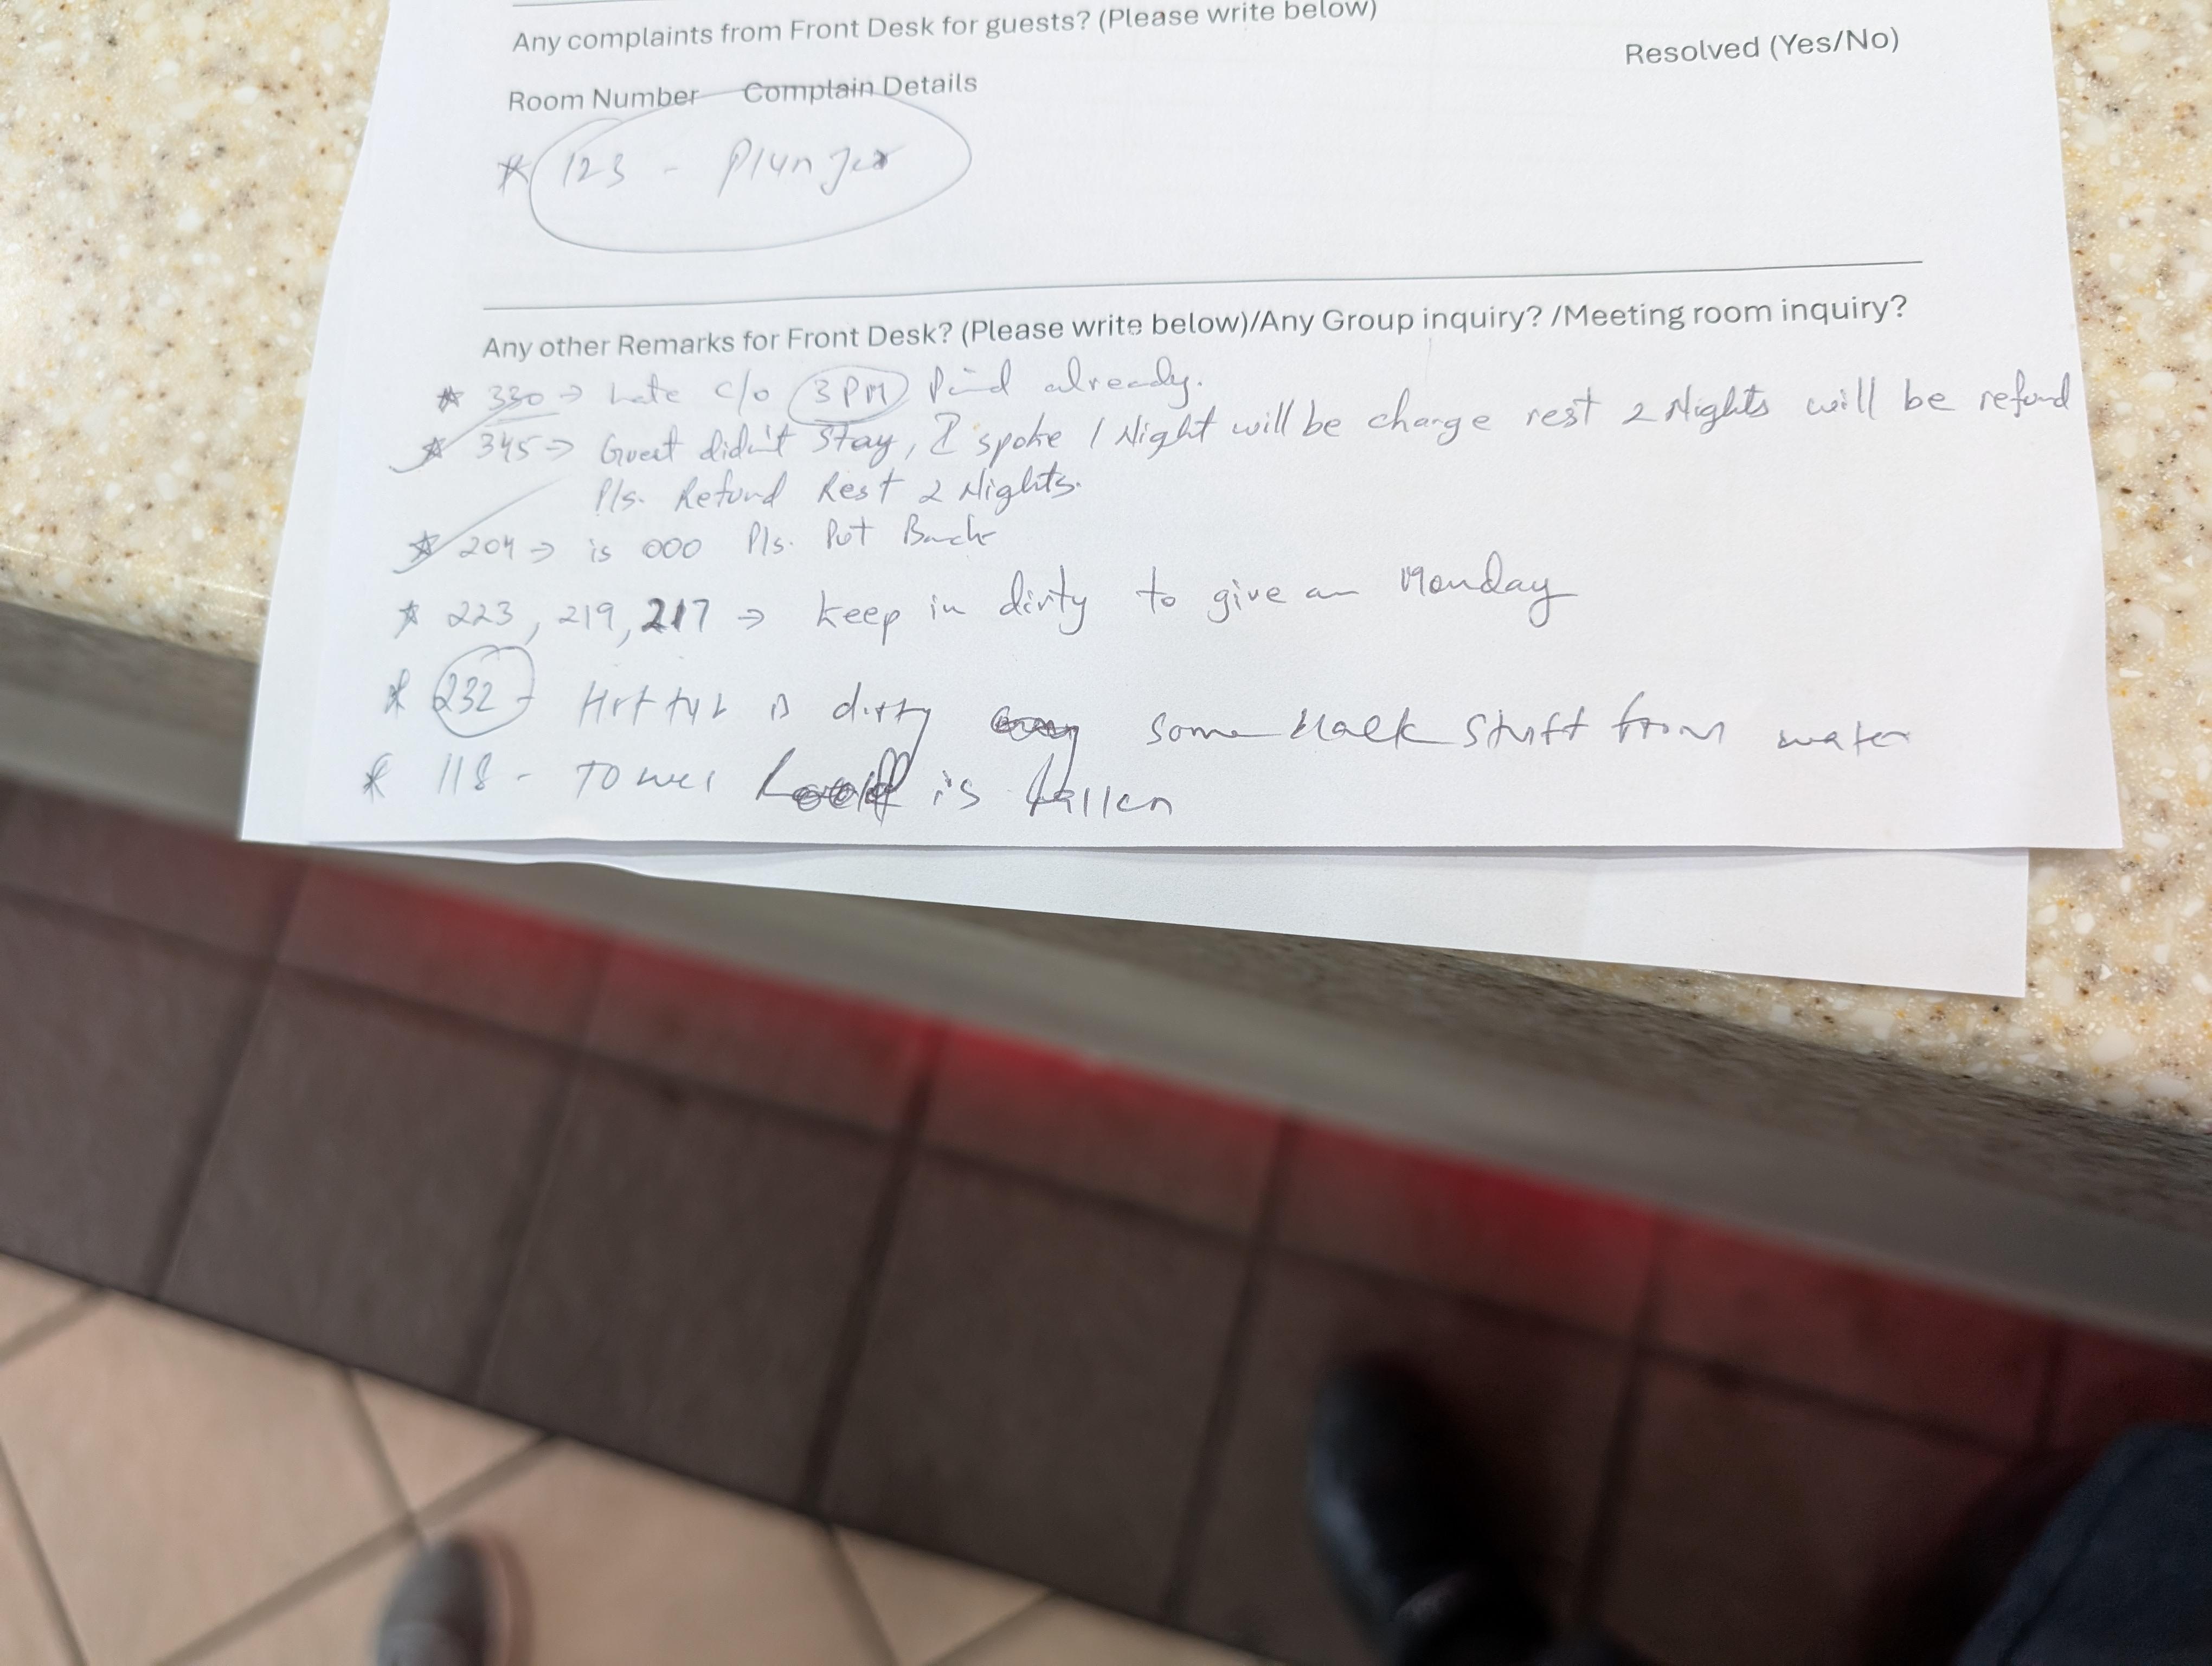 Any complaints from Front Desk for guests? (Please write below)
Resolved (Yes/No)
Room Number Complain Details
* 123 - Plunger
Any other Remarks for Front Desk? (Please write below)/Any Group inquiry? /Meeting room inquiry?
* 330 → Late c/o 3PM Paid already.
* 345 → Guest didn't Stay, I spoke 1 Night will be charge rest 2 Nights will be refund
Pls. Refund Rest 2 Nights.
* 204 → is OOO Pls. Put Back
* 223, 219, 217 → keep in dirty to give on Monday
* 232 - Hot tub is dirty some black stuff from water
* 118 - Towel is fallen